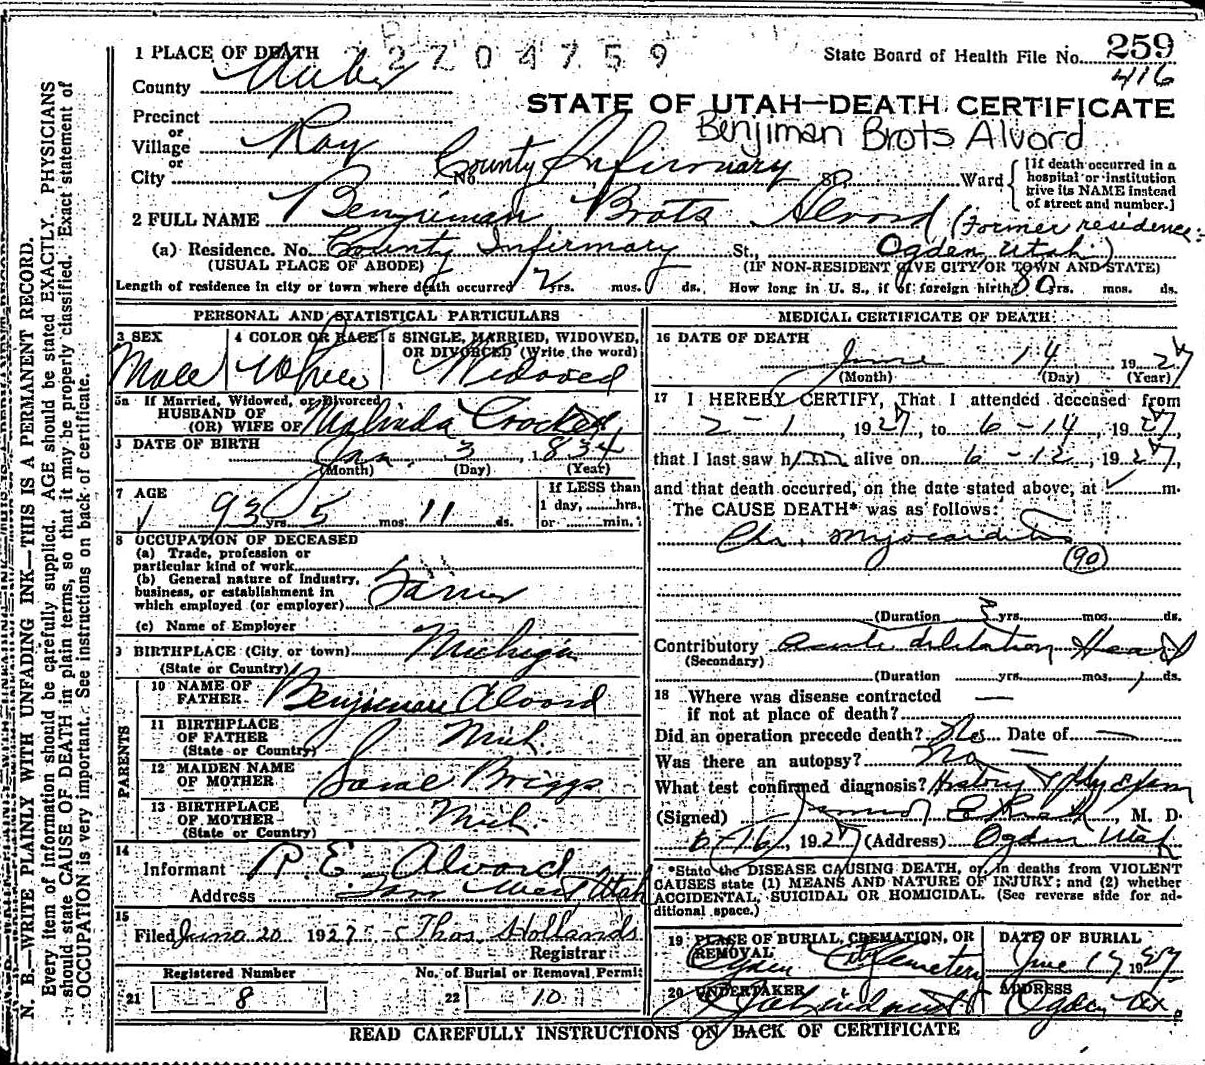 2704759
State Board of Health File No. 259
416
STATE OF UTAH—DEATH CERTIFICATE
Benjiman Brots Alvord
1 PLACE OF DEATH
County
Precinct
or
Village Roy
or
City No. County Infirmary St. Ward
[If death occurred in a
hospital or institution
give its NAME instead
of street and number.]
2 FULL NAME Benjieman Brots Alvord (Former residence:
(a) Residence. No. County Infirmary St., Ogden, Utah)
(USUAL PLACE OF ABODE) (IF NON-RESIDENT GIVE CITY OR TOWN AND STATE)
Length of residence in city or town where death occurred 2 yrs. mos. ds. How long in U. S., if of foreign birth? 80 yrs. mos. ds.
PERSONAL AND STATISTICAL PARTICULARS
3 SEX 4 COLOR OR RACE 5 SINGLE, MARRIED, WIDOWED,
OR DIVORCED (Write the word)
Male White Widowed
5a If Married, Widowed, or Divorced
HUSBAND OF
(OR) WIFE OF Malinda
DATE OF BIRTH
Jan. 3, 1834
(Month) (Day) (Year)
7 AGE If LESS than
1 day, hrs.
93 yrs. 5 mos. 11 ds. or min.
8 OCCUPATION OF DECEASED
(a) Trade, profession or
particular kind of work
(b) General nature of industry,
business, or establishment in
which employed (or employer) Farmer
(c) Name of Employer
9 BIRTHPLACE (City or town) Michigan
(State or Country)
PARENTS
10 NAME OF
FATHER Benjieman Alvord
11 BIRTHPLACE
OF FATHER Mich.
(State or Country)
12 MAIDEN NAME
OF MOTHER Briggs
13 BIRTHPLACE
OF MOTHER Mich.
(State or Country)
14
Informant R. E. Alvord
Address West, Utah
15
Filed June 20 1927 Thos. Hollands
Registrar
Registered Number No. of Burial or Removal Permit
21 8 22 10
MEDICAL CERTIFICATE OF DEATH
16 DATE OF DEATH
June 14 1927
(Month) (Day) (Year)
17 I HEREBY CERTIFY, That I attended deceased from
2-1, 1927, to 6-14, 1927,
that I last saw him alive on 6-12, 1927,
and that death occurred, on the date stated above, at m.
The CAUSE DEATH* was as follows:
Chr. Myocarditis
(90)
(Duration 3 yrs. mos. ds.
Contributory acute dilitation Heart
(Secondary)
(Duration yrs. mos. 1 ds.
18 Where was disease contracted
if not at place of death?
Did an operation precede death? No Date of
Was there an autopsy? No
What test confirmed diagnosis? History & Phy Exam
(Signed) , M. D.
6/16, 1927 (Address) Ogden Utah
*State the DISEASE CAUSING DEATH, or, in deaths from VIOLENT
CAUSES state (1) MEANS AND NATURE OF INJURY; and (2) whether
ACCIDENTAL, SUICIDAL OR HOMICIDAL. (See reverse side for ad-
ditional space.)
19 PLACE OF BURIAL, CREMATION, OR DATE OF BURIAL
REMOVAL
Ogden City Cemetery June 17 1927
20 UNDERTAKER ADDRESS
Ogden Ut.
READ CAREFULLY INSTRUCTIONS ON BACK OF CERTIFICATE
N. B.—WRITE PLAINLY WITH UNFADING INK—THIS IS A PERMANENT RECORD.
Every item of information should be carefully supplied. AGE should be stated EXACTLY. PHYSICIANS
should state CAUSE OF DEATH in plain terms, so that it may be properly classified. Exact statement of
OCCUPATION is very important. See instructions on back of certificate.